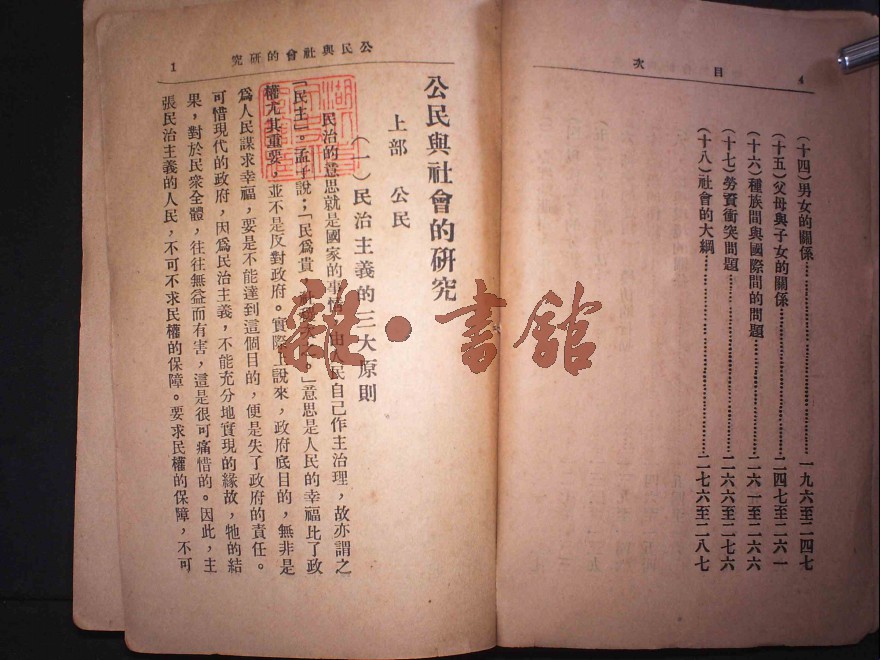 目次
4
(十四)男女的關係……一九六至二四七
(十五)父母與子女的關係……二四七至二六一
(十六)種族間與國際間的問題……二六一至二六六
(十七)勞資衝突問題……二六六至二七六
(十八)社會的大綱……二七六至二八七
公民與社會的研究
1
公民與社會的研究
上部 公民
(一)民治主義的三大原則
民治的意思就是國家的事情,由人民自己作主治理,故亦謂之
「民主」。孟子說;「民爲貴,社稷次之。」意思是人民的幸福比了政
權尤其重要,並不是反對政府。實際上說來,政府底目的,無非是
爲人民謀求幸福,要是不能達到這個目的,便是失了政府的責任。
可惜現代的政府,因爲民治主義,不能充分地實現的緣故,牠的結
果,對於民衆全體,往往無益而有害,這是很可痛惜的。因此,主
張民治主義的人民,不可不求民權的保障。要求民權的保障,不可
雜·書館